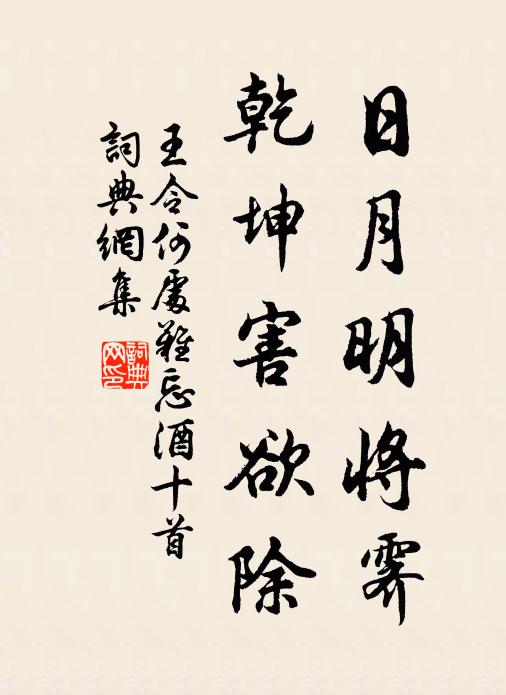 日月明將霽
乾坤害欲除
王令何處難忘酒十首
詞典網集
詞典網印